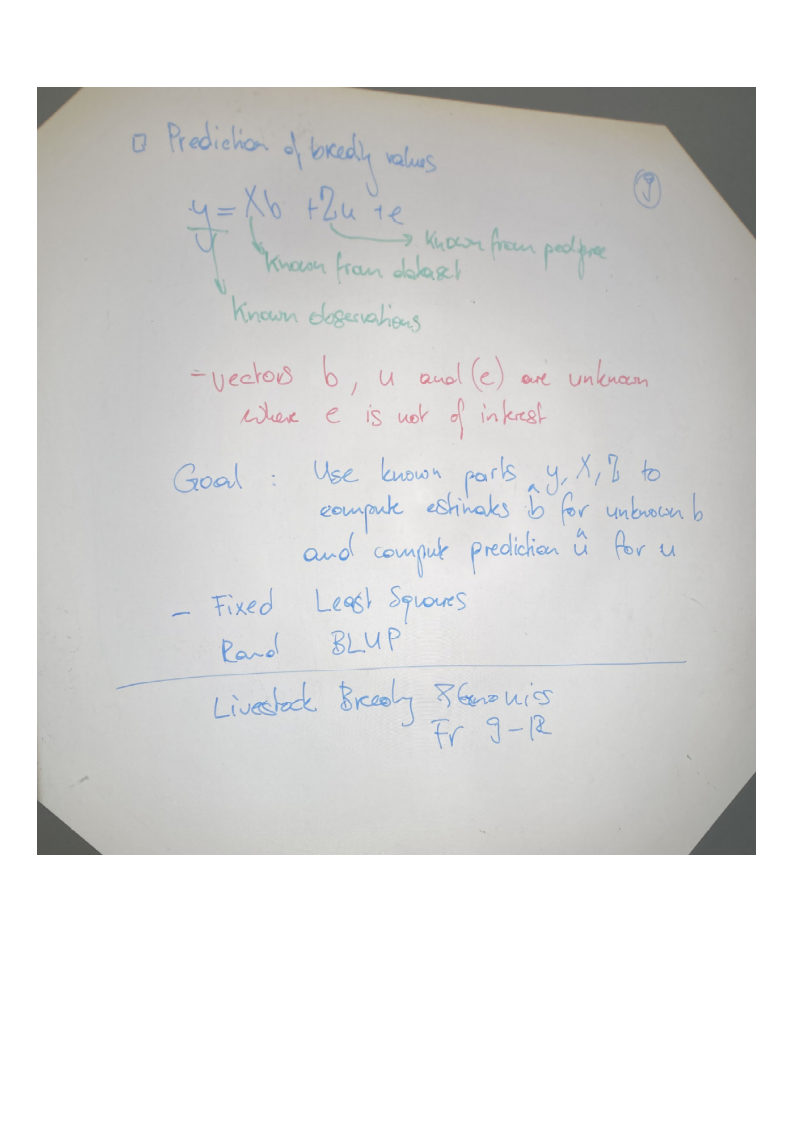 Prediction of breedig values
9
y = Xb + Zu + e
Known from pedigree
Known from dataset
Known observations
- vectors b, u and (e) are unknown
where e is not of interest
Goal : Use known parts y, X, Z to
compute estimates b̂ for unknown b
and compute prediction û for u
- Fixed Least Squares
Rand BLUP
Livestock Breedig & Genomics
Fr 9-12